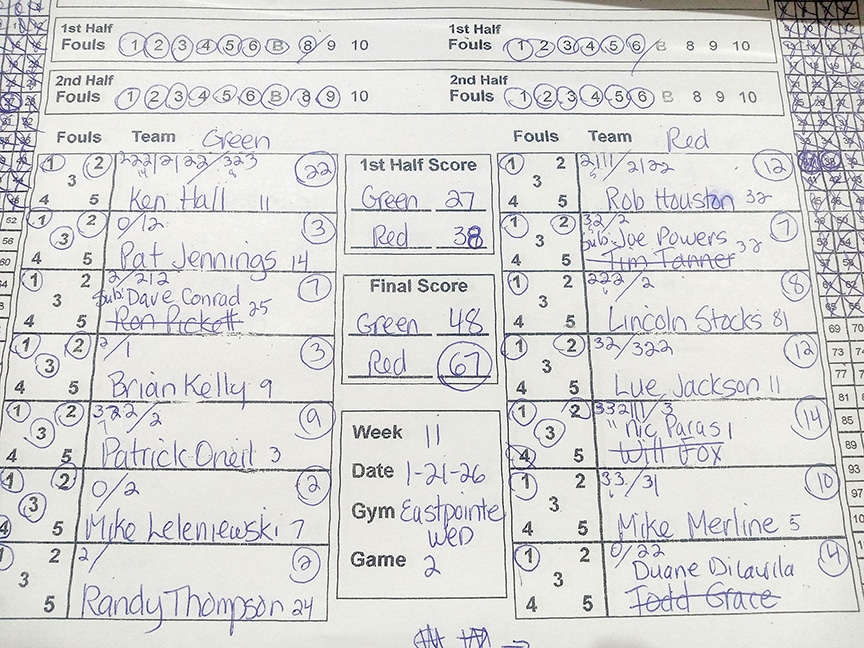 1st Half
Fouls 1 2 3 4 5 6 B 8 9 10
1st Half
Fouls 1 2 3 4 5 6 B 8 9 10
2nd Half
Fouls 1 2 3 4 5 6 B 8 9 10
2nd Half
Fouls 1 2 3 4 5 6 B 8 9 10
Fouls Team Green
1 2 3 4 5
22
Ken Hall 11
1 2 3 4 5
0/12 3
Pat Jennings 14
1 2 3 4 5
2/212 7
Sub: Dave Conrad 25
Ron Pickett
1 2 3 4 5
2/1 3
Brian Kelly 9
1 2 3 4 5
322/2 9
Patrick Oneil 3
1 2 3 4 5
0/2 2
Mike Leleniewski 7
1 2 3 5
2/ 2
Randy Thompson 24
1st Half Score
Green 27
Red 38
Final Score
Green 48
Red 67
Week 11
Date 1-21-26
Gym Eastpointe
WED
Game 2
Fouls Team Red
1 2 3 4 5
2111/2122 12
Rob Houston 32
1 2 3 4 5
32/2 7
Sub: Joe Powers 32
Tim Tanner
1 2 3 4 5
222/2 8
Lincoln Stocks 81
1 2 3 4 5
32/322 12
Lue Jackson 11
1 2 3 4 5
332111/3 14
" Nic Paras 1
Will Fox
1 2 3 4 5
33/31 10
Mike Merline 5
1 2 3 4 5
0/22 4
Duane Dilavila
Todd Grace
52
56
60
69 70
73 74
77
81
85
89
93
97